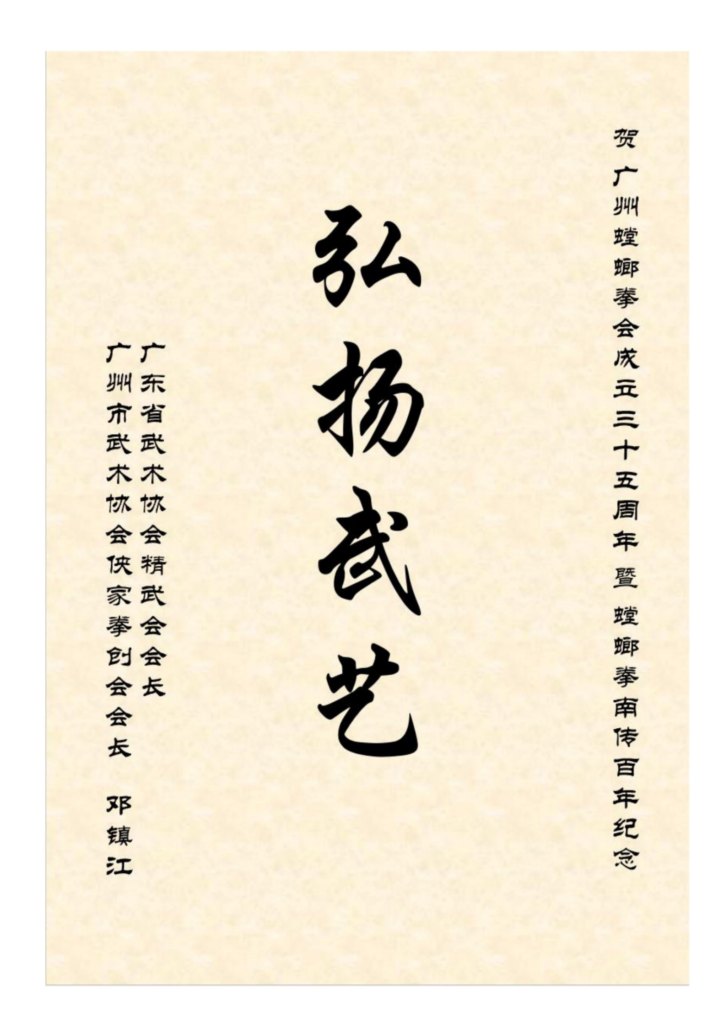 贺 广州螳螂拳会成立三十五周年 暨 螳螂拳南传百年纪念
弘扬武艺
广东省武术协会精武会会长
广州市武术协会侠家拳创会会长 邓镇江